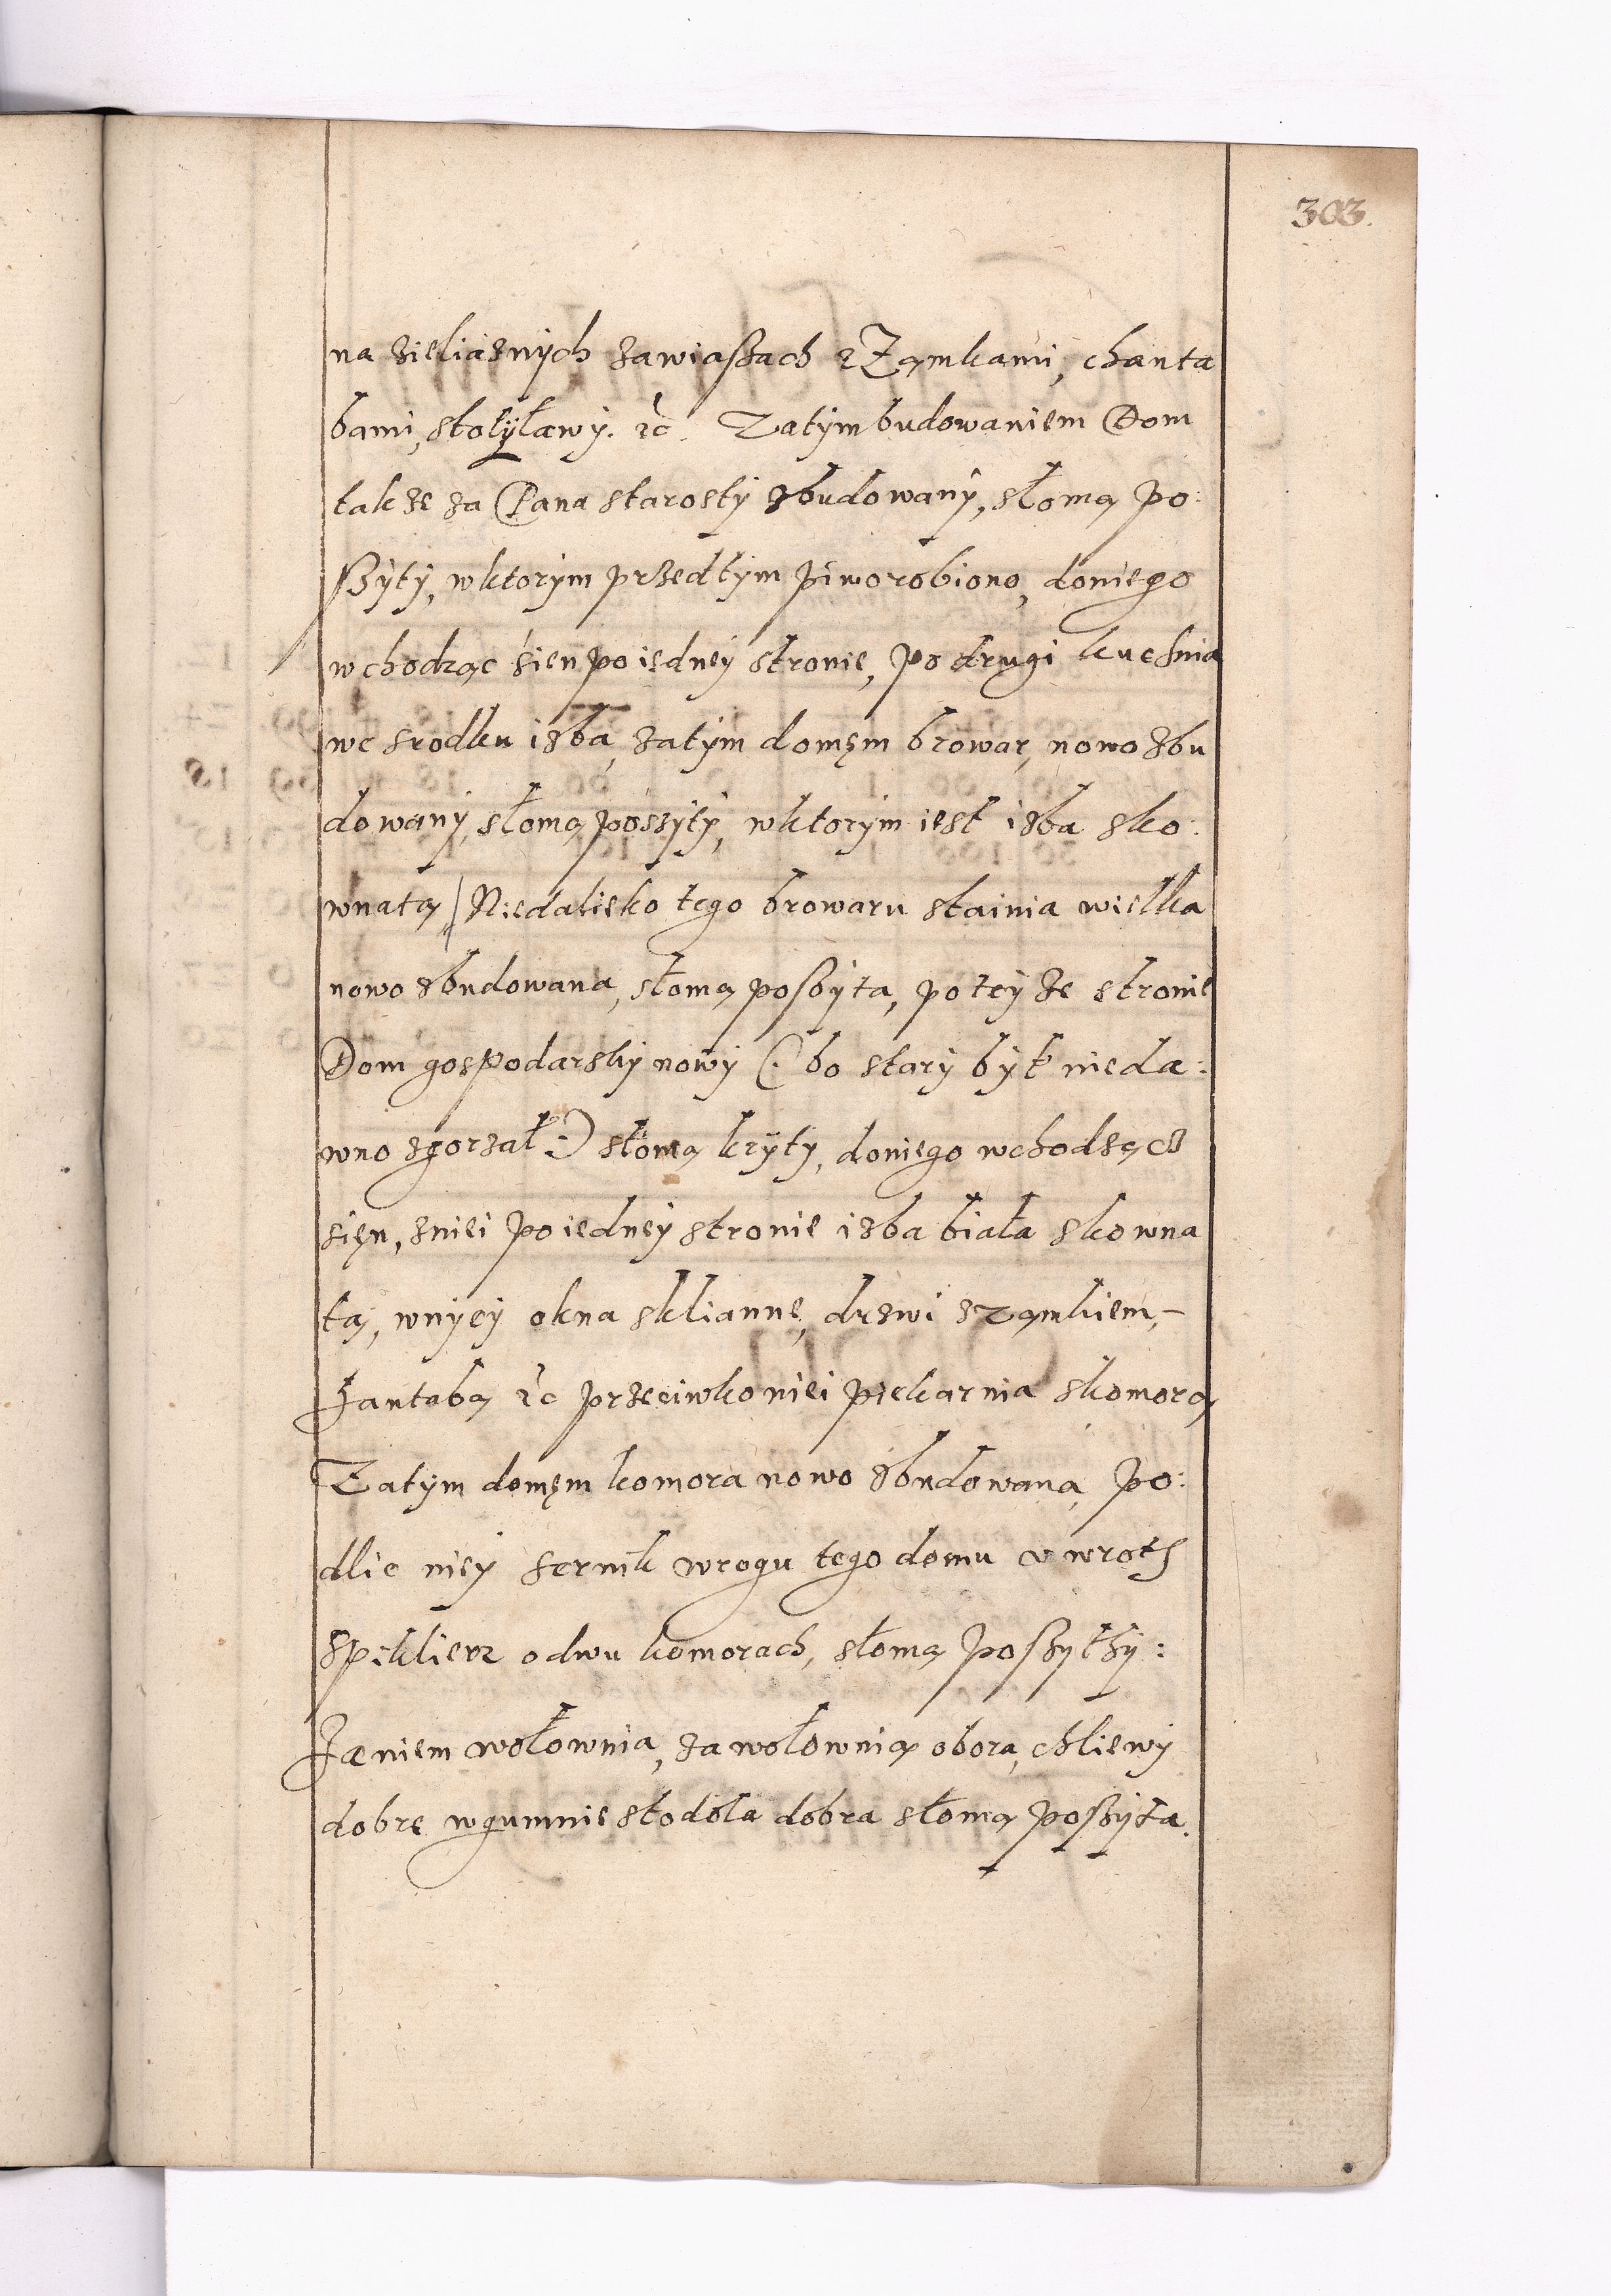 303.
na zieliaznych zawiaszach z Ząmkami, chanta
bami, stoły ławy. etc. Zatym budowaniem Dom
takze za Pana starosty zbudowany, słomą po:
szyty, wktorym przedtym piwo robiono, doniego
wchodząc sien po iedney stronie, po drugi kuchnia
we srodku izba, zatym domęm browar, nowo zbu
dowany, słomą poszyty, wktorym iest izba sko:
wnatą / Niedalieko tego browaru stainia wielka
nowo zbudowana, słomą poszyta, po tey ze stronie
Dom gospodarsky nowy (: bo stary był nieda:
wno zgorzał :) słomą kryty, doniego wchodzącz
sięn, zniei po iedney stronie izba biała skowna
tą, wnyey okna sklianne, drzwi zząmkiem, –
Hantabą etc przeciwko niei piekarnia skomorą
Zatym domęm komora nowo zbudowana, po:
dlie niey sernik wrogu tego domu v wroth
spiklierz odwu komorach, słomą poszythy:
Zaniem wołownia, za wołownią obora, chliewy
dobre wgumnie stodoła dobra słomą poszyta.